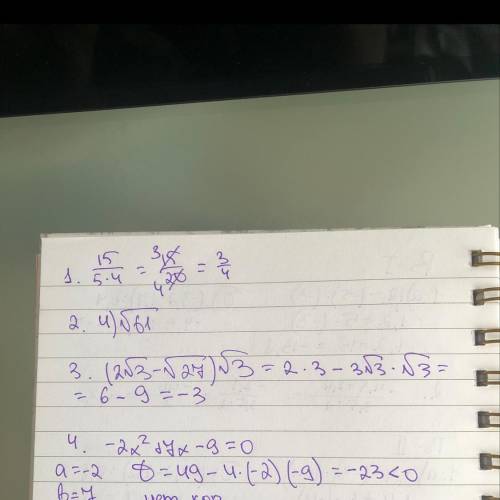 1. 15/5·4 = 3 15/4 20 = 3/4
2. 4)√61
3. (2√3-√27)√3 = 2·3-3√3·√3=
= 6-9=-3
4. -2x²+7x-9=0
a=-2 D=49-4·(-2)(-9)=-23<0
b=7 нет кор